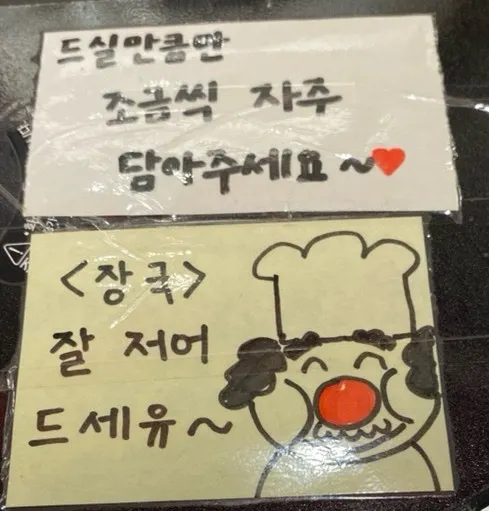 드실만큼만
조금씩 자주
담아주세요~♥
<장국>
잘 저어
드세유~